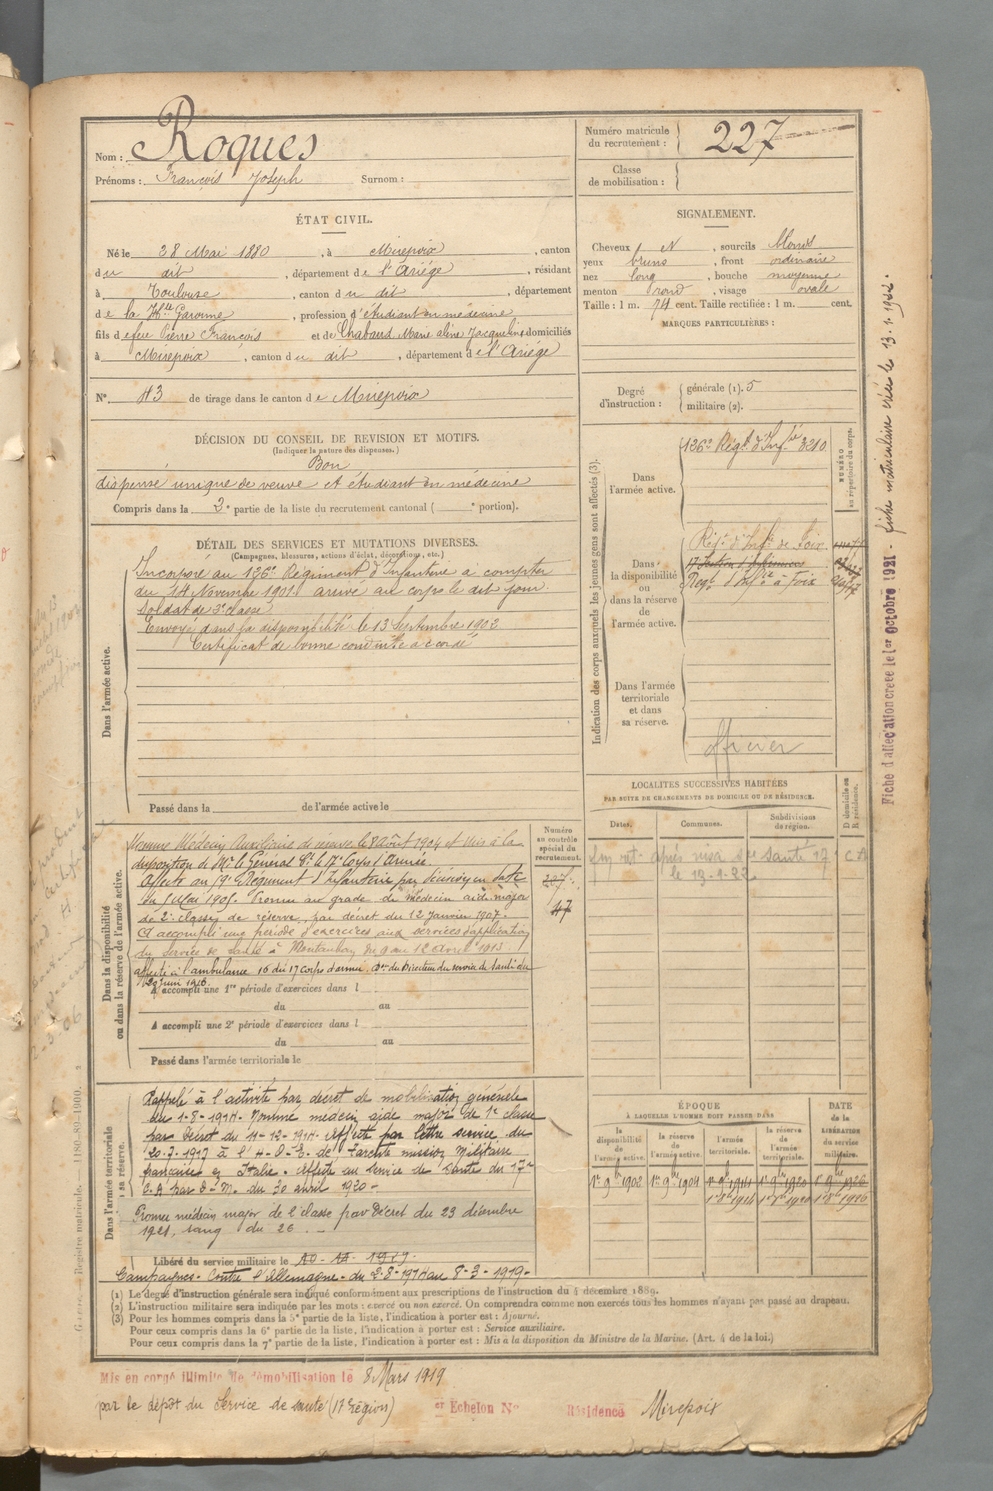 Nom : Roques
Prénoms : François Joseph Surnom :
Numéro matricule du recrutement : 227
Classe de mobilisation :
ÉTAT CIVIL.
Né le 28 Mai 1880, à Mirepoix, canton
du dit, département de l'Ariége, résidant
à Toulouse, canton du dit, département
de la Hte Garonne, profession d'étudiant en médecine
fils de feu Pierre François et de Chabaud Marie aline Jacqueline domiciliés
à Mirepoix, canton du dit, département de l'Ariége
N° 43 de tirage dans le canton de Mirepoix
SIGNALEMENT.
Cheveux N, sourcils blonds
yeux bruns, front ordinaire
nez long, bouche moyenne
menton rond, visage ovale
Taille : 1 m. 74 cent. Taille rectifiée : 1 m. cent.
MARQUES PARTICULIÈRES :
Degré d'instruction : générale (1). 5
militaire (2).
DÉCISION DU CONSEIL DE REVISION ET MOTIFS.
(Indiquer la nature des dispenses.)
Bon
dispensé unique de veuve et étudiant en médecine
Compris dans la 3e partie de la liste du recrutement cantonal ( e portion).
DÉTAIL DES SERVICES ET MUTATIONS DIVERSES.
(Campagnes, blessures, actions d'éclat, décorations, etc.)
Dans l'armée active.
Incorporé au 126e Régiment d'Infanterie à compter
du 14 Novembre 1901 arrivé au corps le dit jour
Soldat de 2e classe
Envoyé dans la disponibilité le 13 Septembre 1902
Certificat de bonne conduite accordé
Passé dans la de l'armée active le
Indication des corps auxquels les jeunes gens sont affectés (3).
NUMÉRO au répertoire du corps.
Dans l'armée active.
126e Régt d'Infie 3210
Dans la disponibilité ou dans la réserve de l'armée active.
Régt d'Infie de Foix
17 Section d'Infirmiers
Régt d'Infie à Foix
Dans l'armée territoriale et dans sa réserve.
officier
LOCALITÉS SUCCESSIVES HABITÉES
PAR SUITE DE CHANGEMENTS DE DOMICILE OU DE RÉSIDENCE.
Dates. Communes. Subdivisions de région. D domicile ou R résidence.
après visa santé 17 C A
le 13-1-22
Dans la disponibilité ou dans la réserve de l'armée active.
Numéro au contrôle spécial du recrutement.
207
47
Nommé Médecin Auxiliaire de réserve le 8 août 1904 et mis à la
disposition de Mr le Général Ct le 17e Corps d'Armée.
Affecté au 9e Régiment d'Infanterie par décision en date
du 1 Mai 1905. Promu au grade de médecin aide major
de 2e classe de réserve, par décret du 12 janvier 1907.
A accompli une période d'exercices aux services d'application
du service de santé à Montauban du 9 au 12 avril 1913
affecté à l'ambulance 16 du 17 corps d'armée. Don du Directeur du service de santé du
29 juin 1916.
A accompli une 1re période d'exercices dans l
du au
A accompli une 2e période d'exercices dans l
du au
Passé dans l'armée territoriale le
Dans l'armée territoriale et sa réserve.
Rappelé à l'activité par décret de mobilisation générale
du 1-8-1914. Nommé médecin aide major de 1e classe
par Décret du 4-12-1914. Affecté par lettre service du
20-7-1917 à l'H-O-E- de l'armée mission Militaire
française en Italie. Affecté au service de santé du 17e
C. A par D-M. du 30 avril 1920-
Promu médecin major de 2e classe par Décret du 23 décembre
1921, rang du 26
Libéré du service militaire le 10-11-1929.
Campagnes. Contre l'Allemagne. du 2-8-1914 au 8-3-1919-
ÉPOQUE
À LAQUELLE L'HOMME DOIT PASSER DANS
la disponibilité de l'armée active. la réserve de l'armée active. l'armée territoriale. la réserve de l'armée territoriale.
DATE de la LIBÉRATION du service militaire.
1er 9bre 1902 1er 9bre 1904 1er 9bre 1914 1er 9bre 1920 1er 9bre 1926
1er 8bre 1914 1er 8bre 1920 1er 8bre 1926
(1) Le degré d'instruction générale sera indiqué conformément aux prescriptions de l'instruction du 4 décembre 1889.
(2) L'instruction militaire sera indiquée par les mots : exercé ou non exercé. On comprendra comme non exercés tous les hommes n'ayant pas passé au drapeau.
(3) Pour les hommes compris dans la 5e partie de la liste, l'indication à porter est : Ajourné.
Pour ceux compris dans la 6e partie de la liste, l'indication à porter est : Service auxiliaire.
Pour ceux compris dans la 7e partie de la liste, l'indication à porter est : Mis à la disposition du Ministre de la Marine. (Art. 4 de la loi.)
Mis en congé illimité de démobilisation le 8 Mars 1919
par le dépôt du Service de santé (17e région) er Echelon N° Résidence Mirepoix
Fiche d'affectation créée le 1er Octobre 1921 - fiche matriculaire créée le 13.1.1922.
Registre matricule. - 1180-89-1900.